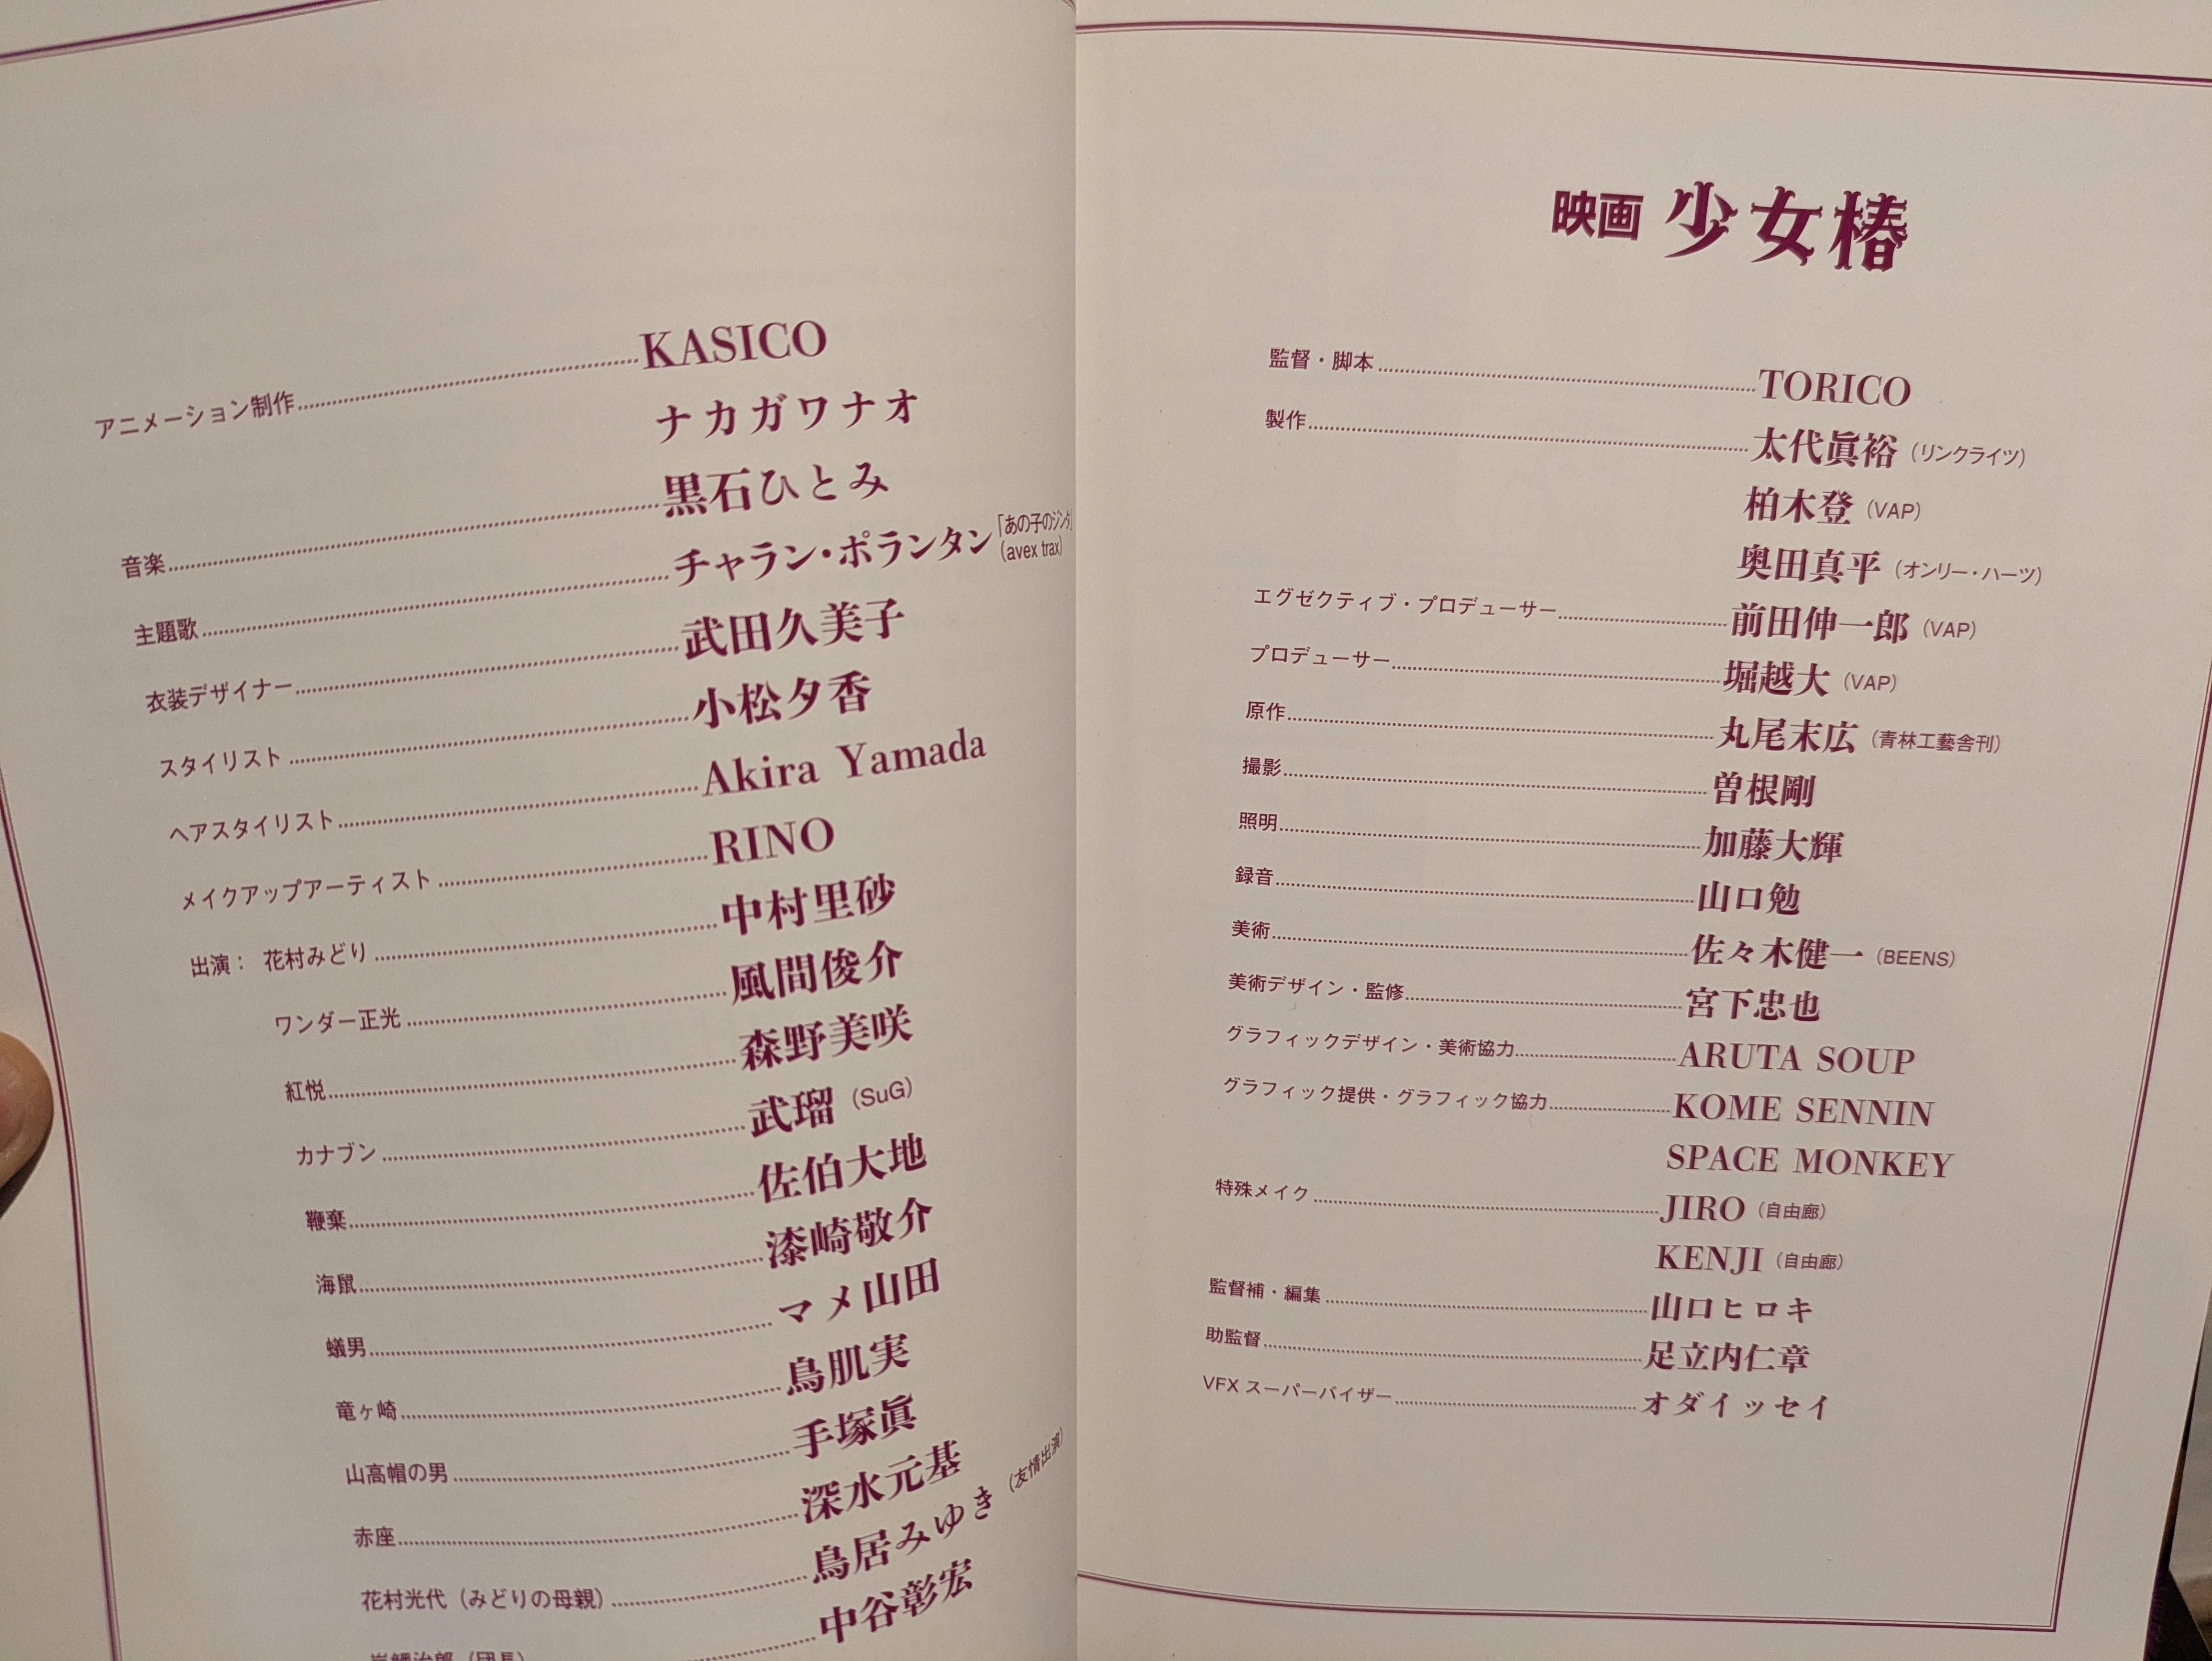 映画 少女椿
監督・脚本 TORICO
製作 太代眞裕（リンクライツ）
柏木登（VAP）
奥田真平（オンリー・ハーツ）
エグゼクティブ・プロデューサー 前田伸一郎（VAP）
プロデューサー 堀越大（VAP）
原作 丸尾末広（青林工藝舎刊）
撮影 曽根剛
照明 加藤大輝
録音 山口勉
美術 佐々木健一（BEENS）
美術デザイン・監修 宮下忠也
グラフィックデザイン・美術協力 ARUTA SOUP
グラフィック提供・グラフィック協力 KOME SENNIN
SPACE MONKEY
特殊メイク JIRO（自由廊）
KENJI（自由廊）
監督補・編集 山口ヒロキ
助監督 足立内仁章
VFX スーパーバイザー オダイッセイ
アニメーション制作 KASICO
ナカガワナオ
音楽 黒石ひとみ
主題歌 チャラン・ポランタン「あの子のジンタ」
(avex trax)
衣装デザイナー 武田久美子
スタイリスト 小松夕香
ヘアスタイリスト Akira Yamada
メイクアップアーティスト RINO
出演： 花村みどり 中村里砂
ワンダー正光 風間俊介
紅悦 森野美咲
カナブン 武瑠（SuG）
鞭棄 佐伯大地
海鼠 漆崎敬介
蟻男 マメ山田
竜ヶ崎 鳥肌実
山高帽の男 手塚眞
赤座 深水元基
花村光代（みどりの母親） 鳥居みゆき（友情出演）
中谷彰宏